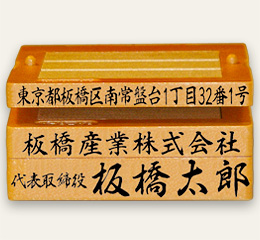 東京都板橋区南常盤台1丁目32番1号
板橋産業株式会社
代表取締役 板橋太郎